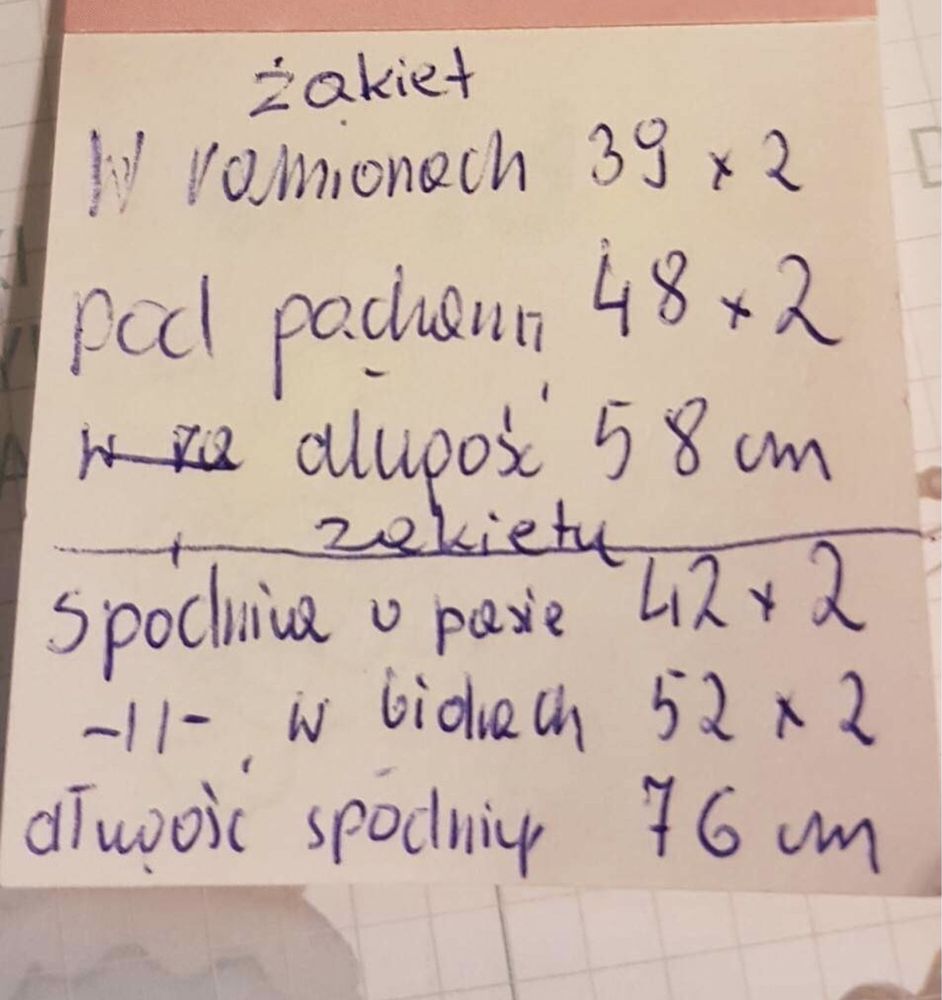 żakiet
W ramionach 39 x 2
pod pachami 48 x 2
długość 58 cm
żakietu
Spódnica w pasie 42 x 2
-11- w biodrach 52 x 2
długość spódnicy 76 cm